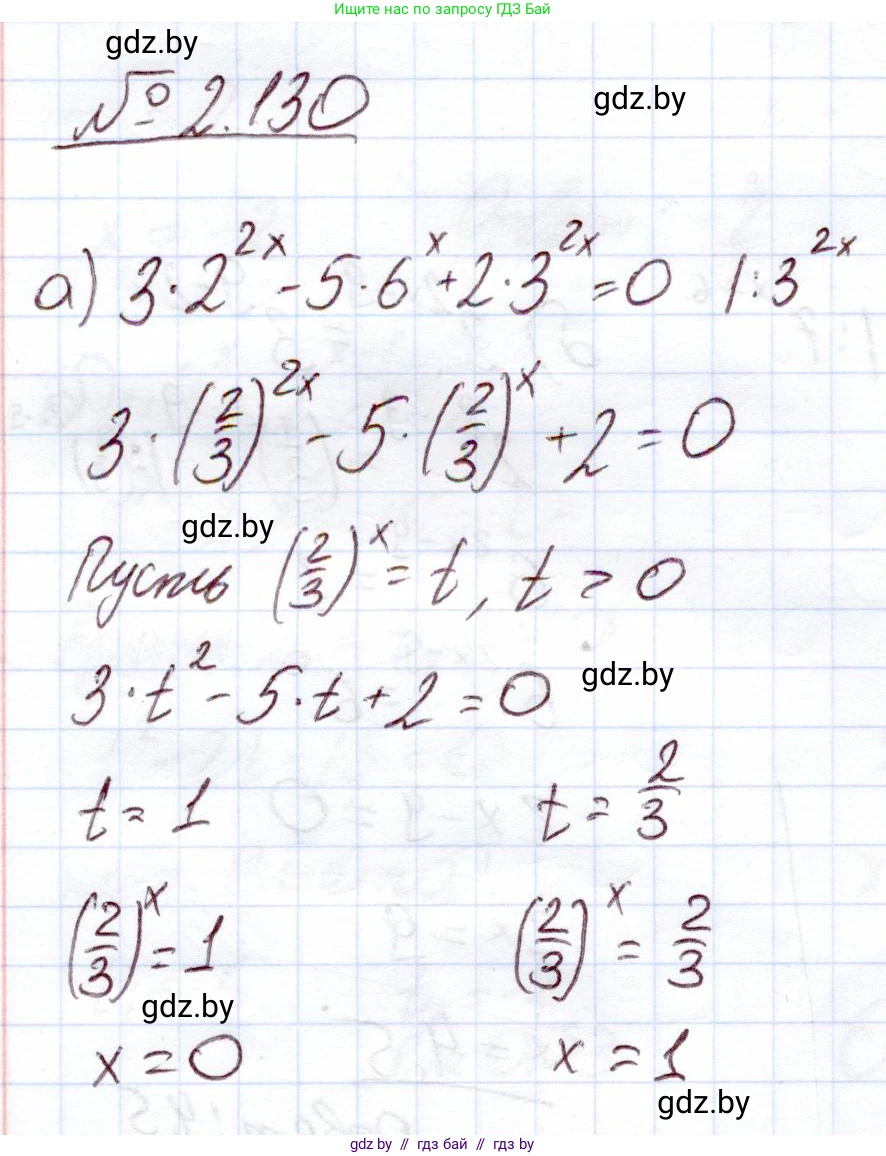 Ищите нас по запросу ГДЗ Бай
gdz.by
№ 2.130
gdz.by
а) 3·2^{2x} - 5·6^x + 2·3^{2x} = 0 |:3^{2x}
3·(2/3)^{2x} - 5·(2/3)^x + 2 = 0
gdz.by
Пусть (2/3)^x = t, t > 0
3·t² - 5·t + 2 = 0
gdz.by
t = 1 t = 2/3
(2/3)^x = 1 (2/3)^x = 2/3
gdz.by
x = 0 x = 1
gdz.by
gdz by // гдз бай // gdz by